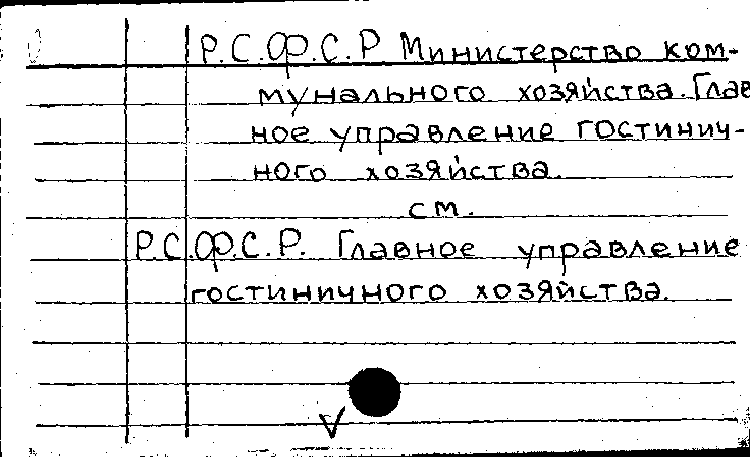 Р.С.Ф.С.Р Министерство ком-
мунального хозяйства. Глав
ное управление гостинич-
ного хозяйства.
см.
Р.С.Ф.С.Р. Главное управление
гостиничного хозяйства.